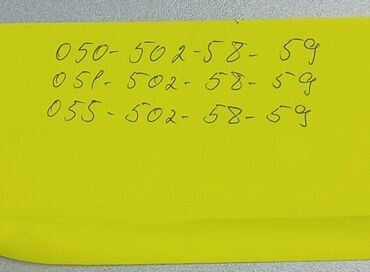 050-502-58-59
051-502-58-59
055-502-58-59